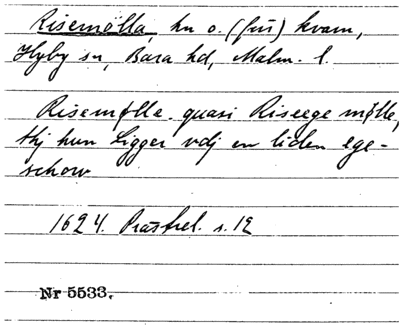 Risemølla, hn o. (fnt) kvarn,
Hyby sn, Bara hd, Malm. l.
Risemølle. quasi Riseege mølle,
thj hun Ligger vdj en liden ege-
schow
1624. Prästrel. s. 12
Nr 5533.